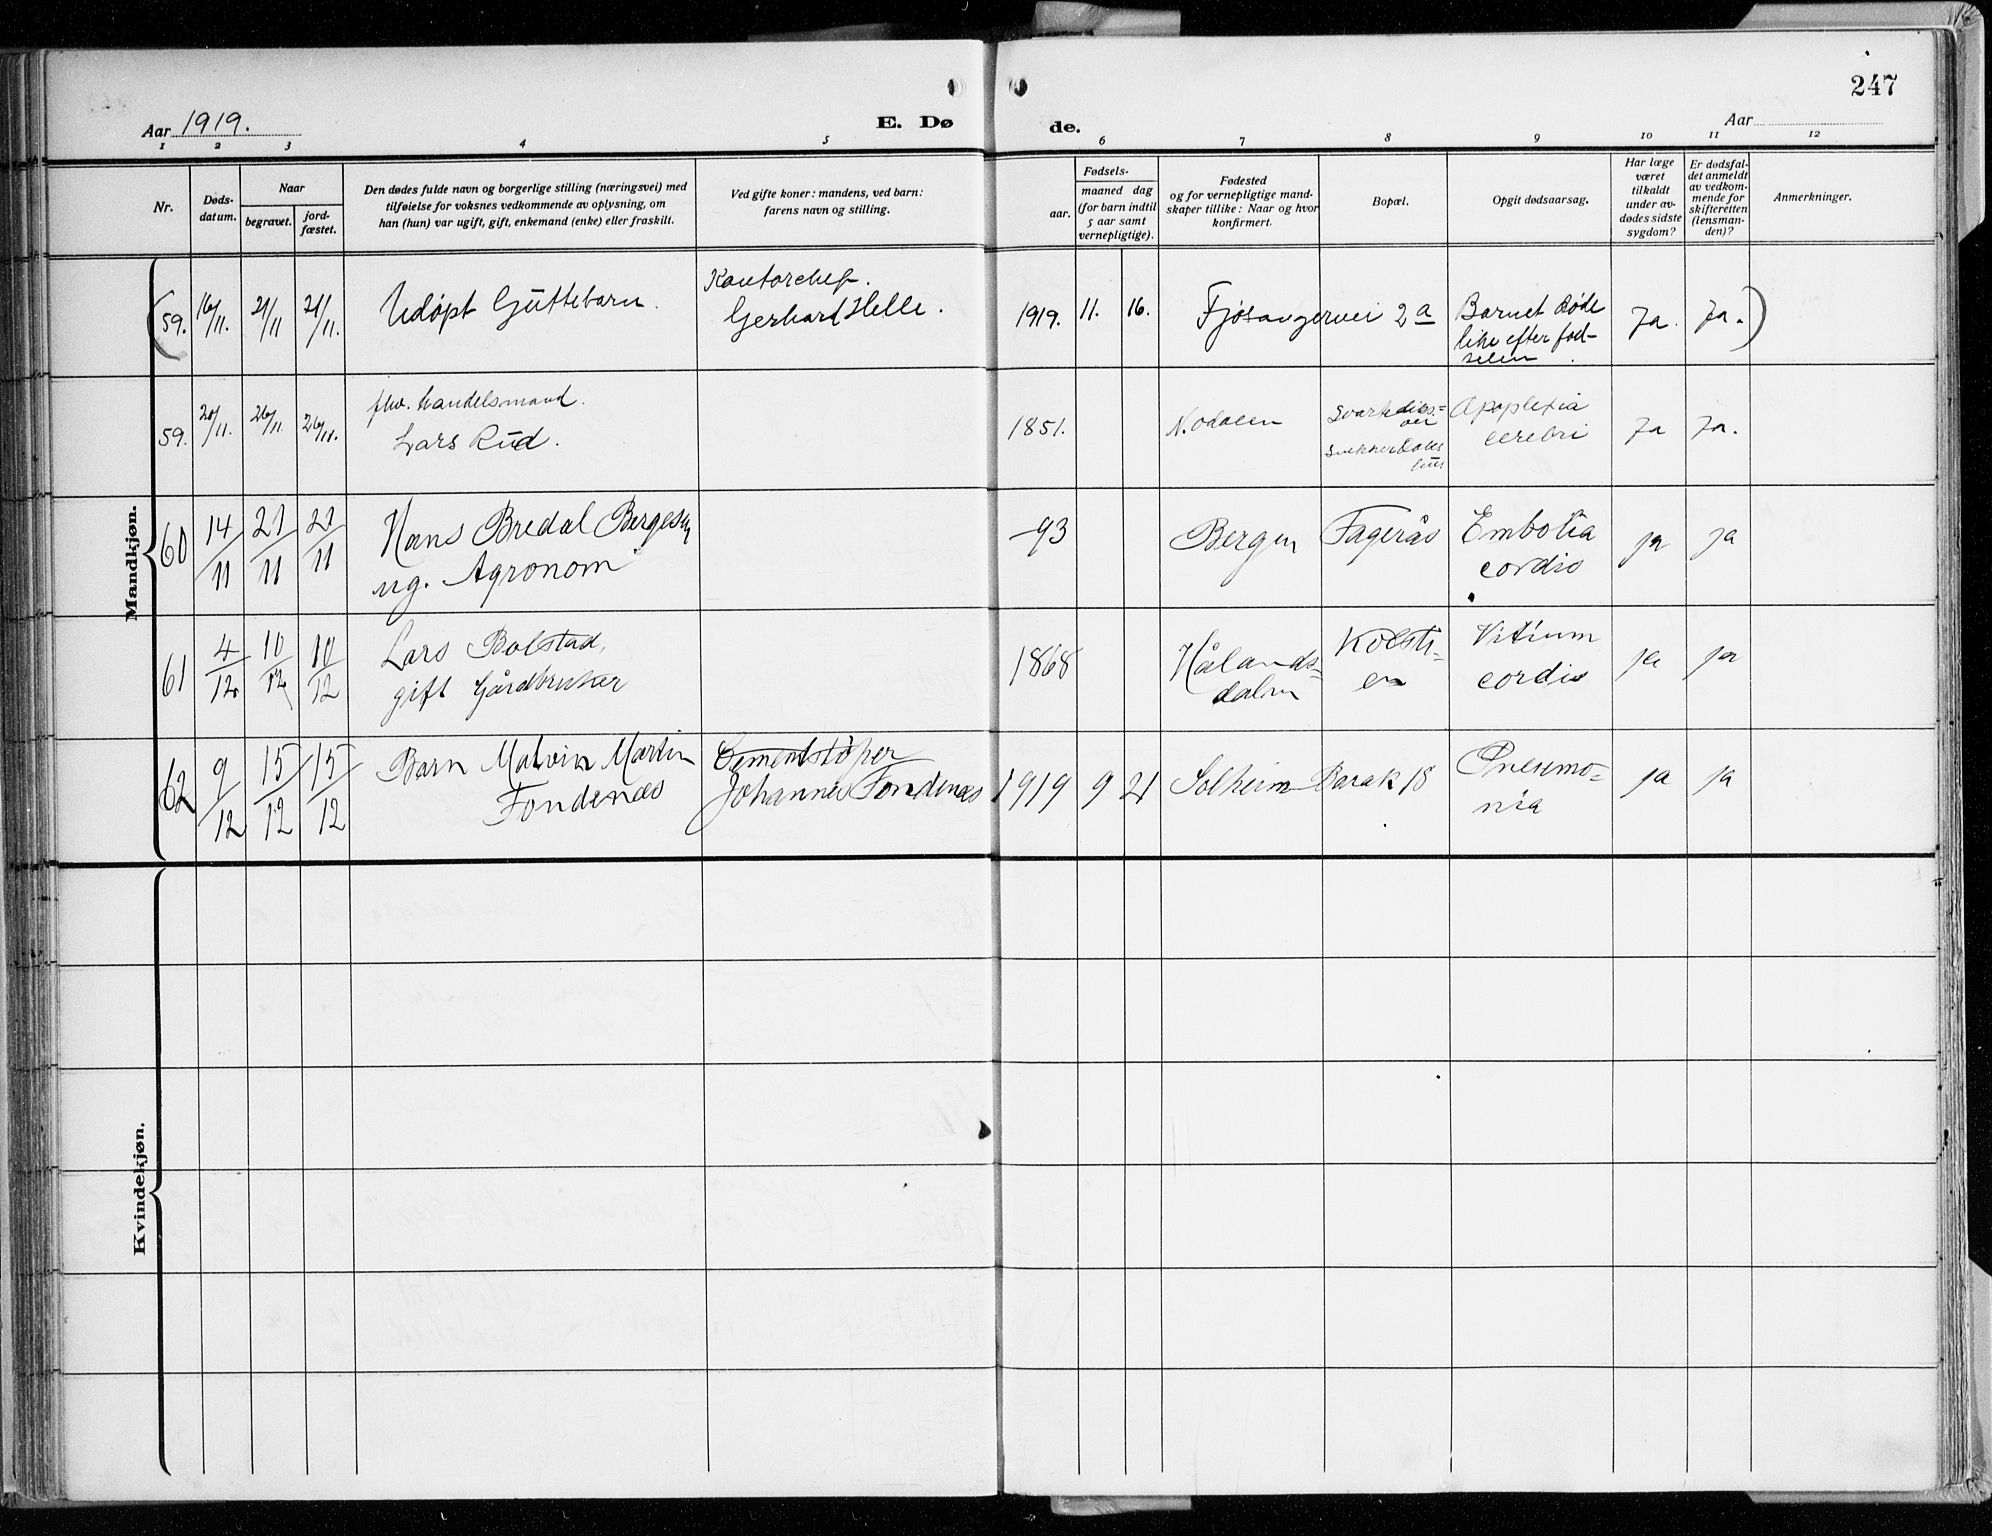 247
Aar 1919.
E. Dø
de.
Aar
1 2 3 4 5 6 7 8 9 10 11 12
Nr.
Døds-
datum.
Naar
begravet.
jord-
fæstet.
Den dødes fulde navn og borgerlige stilling (næringsvei) med
tilføielse for voksnes vedkommende av oplysning, om
han (hun) var ugift, gift, enkemand (enke) eller fraskilt.
Ved gifte koner: mandens, ved barn:
farens navn og stilling.
Fødsels-
aar.
maaned dag
(for barn indtil
5 aar samt
vernepligtige).
Fødested
og for vernepligtige mand-
skaper tillike: Naar og hvor
konfirmert.
Bopæl.
Opgit dødsaarsag.
Har læge
været
tilkaldt
under av-
dødes sidste
sygdom?
Er dødsfal-
det anmeldt
av vedkom-
mende for
skifteretten
(lensman-
den)?
Anmerkninger.
Mandkjøn.
(59. 16/11. 21/11 21/11. Udøpt Guttebarn. Kontorchef.
Gerhard Helle. 1919. 11. 16. Fjøsangervei 2a Barnet døde
like efter fød-
selen. Ja. Ja.)
59. 20/11. 26/11. 26/11. fhv. handelsmand.
Lars Rud. 1851. N. odalen
Apoplexia
cerebri Ja Ja.
60 14/11 21/11 21/11 Hans Bredal Bergesen
ug. Agronom -93 Bergen Fagerås Embolia
cordis ja ja
61 4/12 10/12 10/12 Lars Bolstad,
gift Gårdbruker 1868 Hålands-
dalen Kolsti-
en Vitium
cordis ja ja
62 9/12 15/12 15/12 Barn Malvin Martin
Fondenæs Cementstøper
Johannes Fondenæs 1919 9 21 Solheim Barak 18 Pneumo-
nia ja ja
Kvindekjøn.